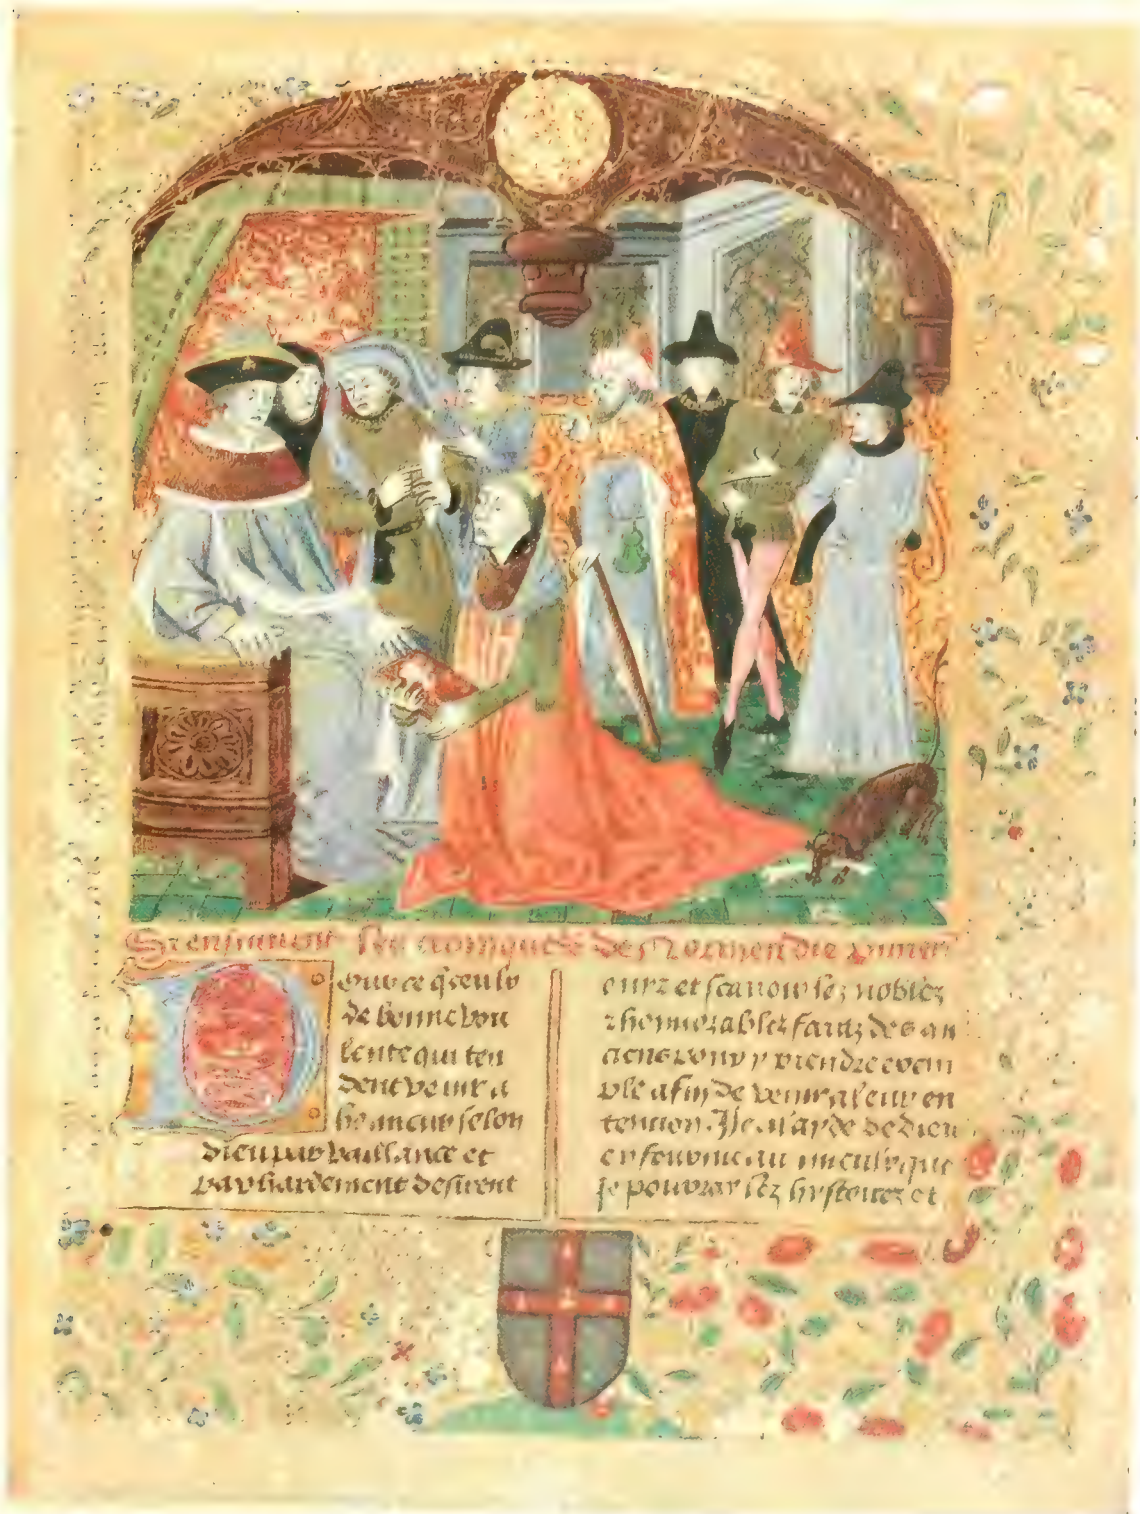 les croniques de Normendie
Pour ce q̃ ceulx
de bonne vou
lente qui ten
dent venir a
honneur selon
dieu par vaillance et
par hardement desirent
et scavoir lez noblez
z honnorablez faitz des an
ciens pour y prendre exem
ple afin de venir a leur en
tention Je a l'ayde de dieu
que
je pourray lez hystoirez et